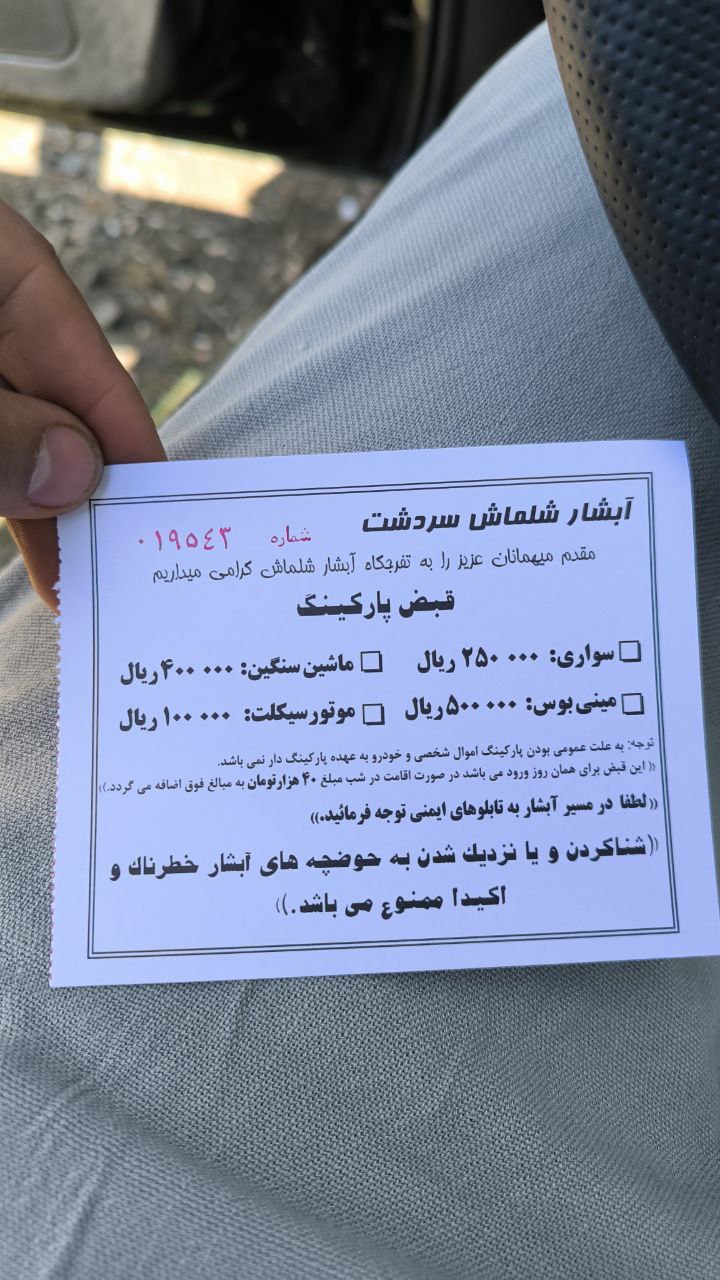 آبشار شلماش سردشت
شماره ۰۱۹۵۴۳
مقدم میهمانان عزیز را به تفرجگاه آبشار شلماش گرامی میداریم
قبض پارکینگ
سواری: ۲۵۰۰۰۰ ریال ماشین سنگین: ۴۰۰۰۰۰ ریال
مینی بوس: ۵۰۰۰۰۰ ریال موتور سیکلت: ۱۰۰۰۰۰ ریال
توجه: به علت عمومی بودن پارکینگ اموال شخصی و خودرو به عهده پارکینگ دار نمی باشد.
(( این قبض برای همان روز ورود می باشد در صورت اقامت در شب مبلغ ۴۰ هزارتومان به مبالغ فوق اضافه می گردد.))
((لطفا در مسیر آبشار به تابلوهای ایمنی توجه فرمائید.))
((شناکردن و یا نزدیك شدن به حوضچه های آبشار خطرناك و
اکیدا ممنوع می باشد.))